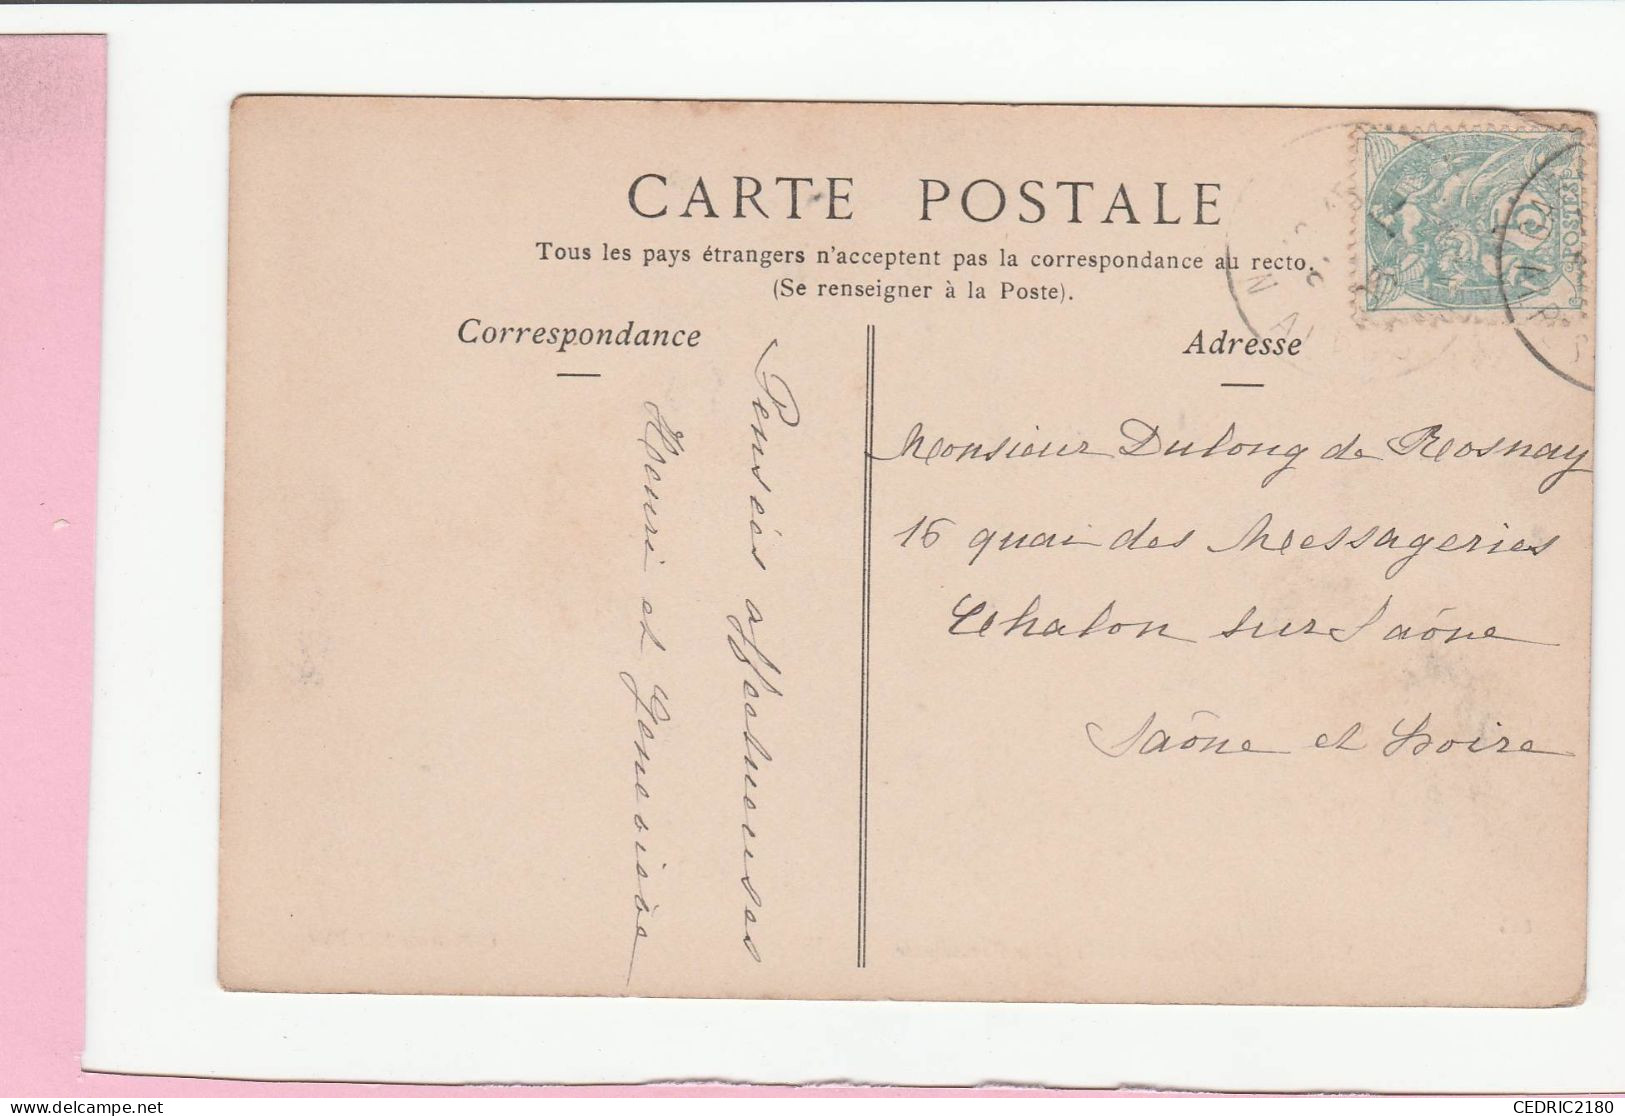 CARTE POSTALE
Tous les pays étrangers n'acceptent pas la correspondance au recto.
(Se renseigner à la Poste).
Correspondance
Adresse
Pensées affectueuses
Henri et Geneviève
Monsieur Dulong de Rosnay
16 quai des Messageries
Chalon sur Saône
Saône et Loire
5
POSTES
CEDRIC2180